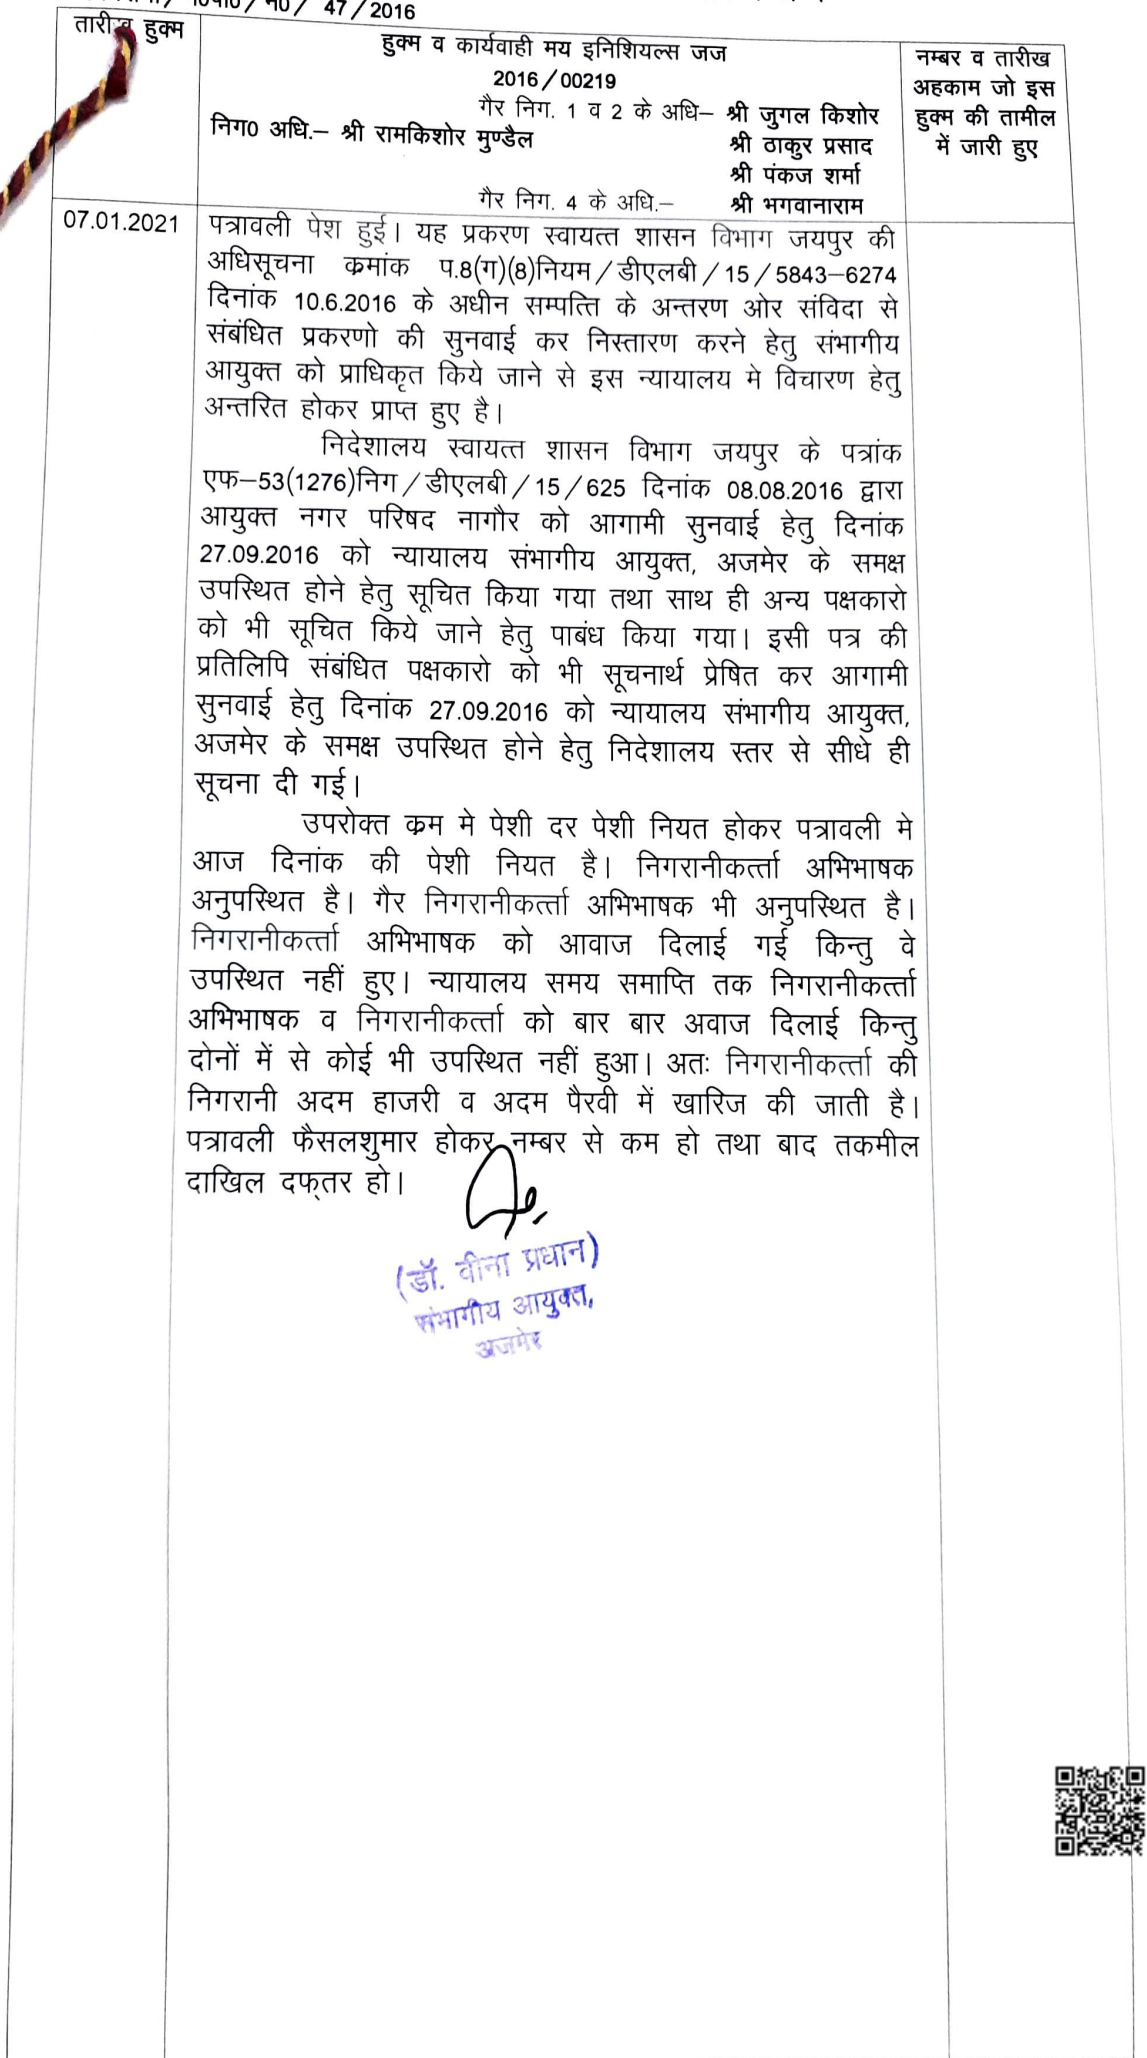 47/2016
तारीख हुक्म
हुक्म व कार्यवाही मय इनिशियल्स जज
2016/00219
गैर निग. 1 व 2 के अधि– श्री जुगल किशोर
निग0 अधि.– श्री रामकिशोर मुण्डैल
श्री ठाकुर प्रसाद
श्री पंकज शर्मा
गैर निग. 4 के अधि.– श्री भगवानाराम
नम्बर व तारीख
अहकाम जो इस
हुक्म की तामील
में जारी हुए
07.01.2021
पत्रावली पेश हुई। यह प्रकरण स्वायत्त शासन विभाग जयपुर की
अधिसूचना कमांक प.8(ग)(8)नियम/डीएलबी/15/5843–6274
दिनांक 10.6.2016 के अधीन सम्पत्ति के अन्तरण ओर संविदा से
संबंधित प्रकरणो की सुनवाई कर निस्तारण करने हेतु संभागीय
आयुक्त को प्राधिकृत किये जाने से इस न्यायालय मे विचारण हेतु
अन्तरित होकर प्राप्त हुए है।
निदेशालय स्वायत्त शासन विभाग जयपुर के पत्रांक
एफ–53(1276)निग/डीएलबी/15/625 दिनांक 08.08.2016 द्वारा
आयुक्त नगर परिषद नागौर को आगामी सुनवाई हेतु दिनांक
27.09.2016 को न्यायालय संभागीय आयुक्त, अजमेर के समक्ष
उपस्थित होने हेतु सूचित किया गया तथा साथ ही अन्य पक्षकारो
को भी सूचित किये जाने हेतु पाबंध किया गया। इसी पत्र की
प्रतिलिपि संबंधित पक्षकारो को भी सूचनार्थ प्रेषित कर आगामी
सुनवाई हेतु दिनांक 27.09.2016 को न्यायालय संभागीय आयुक्त,
अजमेर के समक्ष उपस्थित होने हेतु निदेशालय स्तर से सीधे ही
सूचना दी गई।
उपरोक्त कम मे पेशी दर पेशी नियत होकर पत्रावली मे
आज दिनांक की पेशी नियत है। निगरानीकर्त्ता अभिभाषक
अनुपस्थित है। गैर निगरानीकर्त्ता अभिभाषक भी अनुपस्थित है।
निगरानीकर्त्ता अभिभाषक को आवाज दिलाई गई किन्तु वे
उपस्थित नहीं हुए। न्यायालय समय समाप्ति तक निगरानीकर्त्ता
अभिभाषक व निगरानीकर्त्ता को बार बार अवाज दिलाई किन्तु
दोनों में से कोई भी उपस्थित नहीं हुआ। अतः निगरानीकर्त्ता की
निगरानी अदम हाजरी व अदम पैरवी में खारिज की जाती है।
पत्रावली फैसलशुमार होकर नम्बर से कम हो तथा बाद तकमील
दाखिल दफ्तर हो।
(डॉ. वीना प्रधान)
संभागीय आयुक्त,
अजमेर